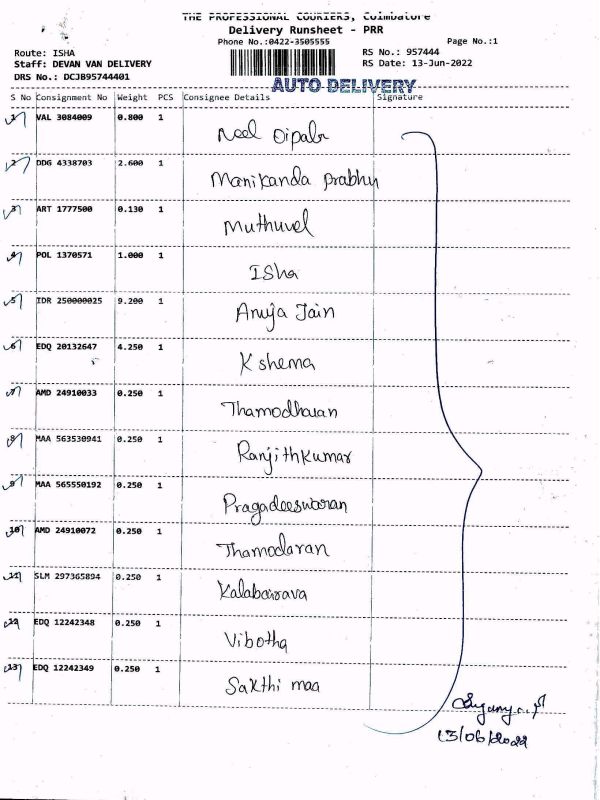 THE PROFESSIONAL COURIERS, Coimbatore
Delivery Runsheet - PRR
Phone No.:0422-3505555
Page No.:1
Route: ISHA
Staff: DEVAN VAN DELIVERY
DRS No.: DCJB95744401
RS No.: 957444
RS Date: 13-Jun-2022
AUTO DELIVERY
S No Consignment No Weight PCS Consignee Details Signature
1 VAL 3084009 0.800 1 Neel Dipabr
2 DDG 4338703 2.600 1 Manikanda prabhu
3 ART 1777500 0.130 1 Muthuvel
4 POL 1370571 1.000 1 ISha
5 IDR 250000025 9.200 1 Anuja Jain
6 EDQ 20132647 4.250 1 Kshema
7 AMD 24910033 0.250 1 Thamodharan
8 MAA 563530941 0.250 1 Ranjithkumar
9 MAA 565550192 0.250 1 Pragadeeswaran
10 AMD 24910072 0.250 1 Thamodaran
11 SLM 297365894 0.250 1
12 EDQ 12242348 0.250 1 Vibotha
13 EDQ 12242349 0.250 1 Sakthi maa
13/06/2022